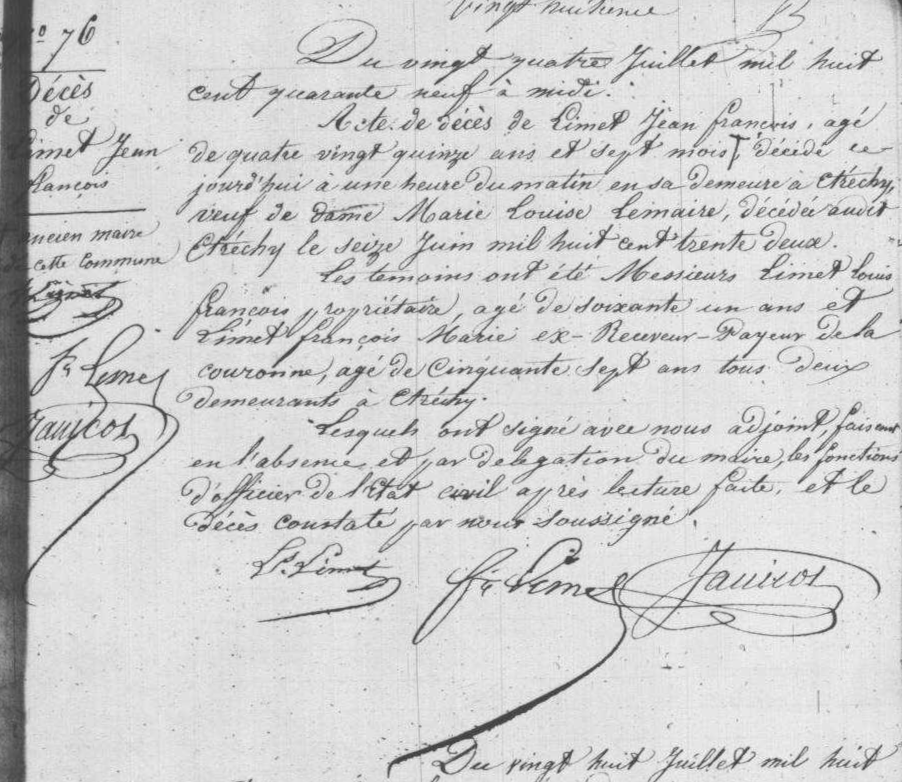 vingt huitieme
76
Décès
de
Limet Jean
François
ancien maire
de cette Commune
Fr Limet
Javixos
Du vingt quatre Juillet mil huit
cent quarante neuf à midi.
Acte de décès de Limet Jean françois, agé
de quatre vingt quinze ans et sept mois, décédé ce
jourd'hui à une heure du matin en sa demeure à Etréchy,
veuf de dame Marie Louise Lemaire, décédée audit
Etréchy le seize Juin mil huit cent trente deux.
Les temoins ont été Messieurs Limet Louis
françois propriétaire, agé de soixante un ans et
Limet françois Marie ex-Receveur-Payeur de la
couronne, agé de cinquante sept ans tous deux
demeurants à Etréchy.
Lesquels ont signé avec nous adjoint, faisant
en l'absence et par delegation du maire, les fonctions
d'officier de l'Etat civil après lecture faite, et le
décès constaté par nous soussigné.
Ls Limet
fr Limet
Javixos
Du vingt huit Juillet mil huit